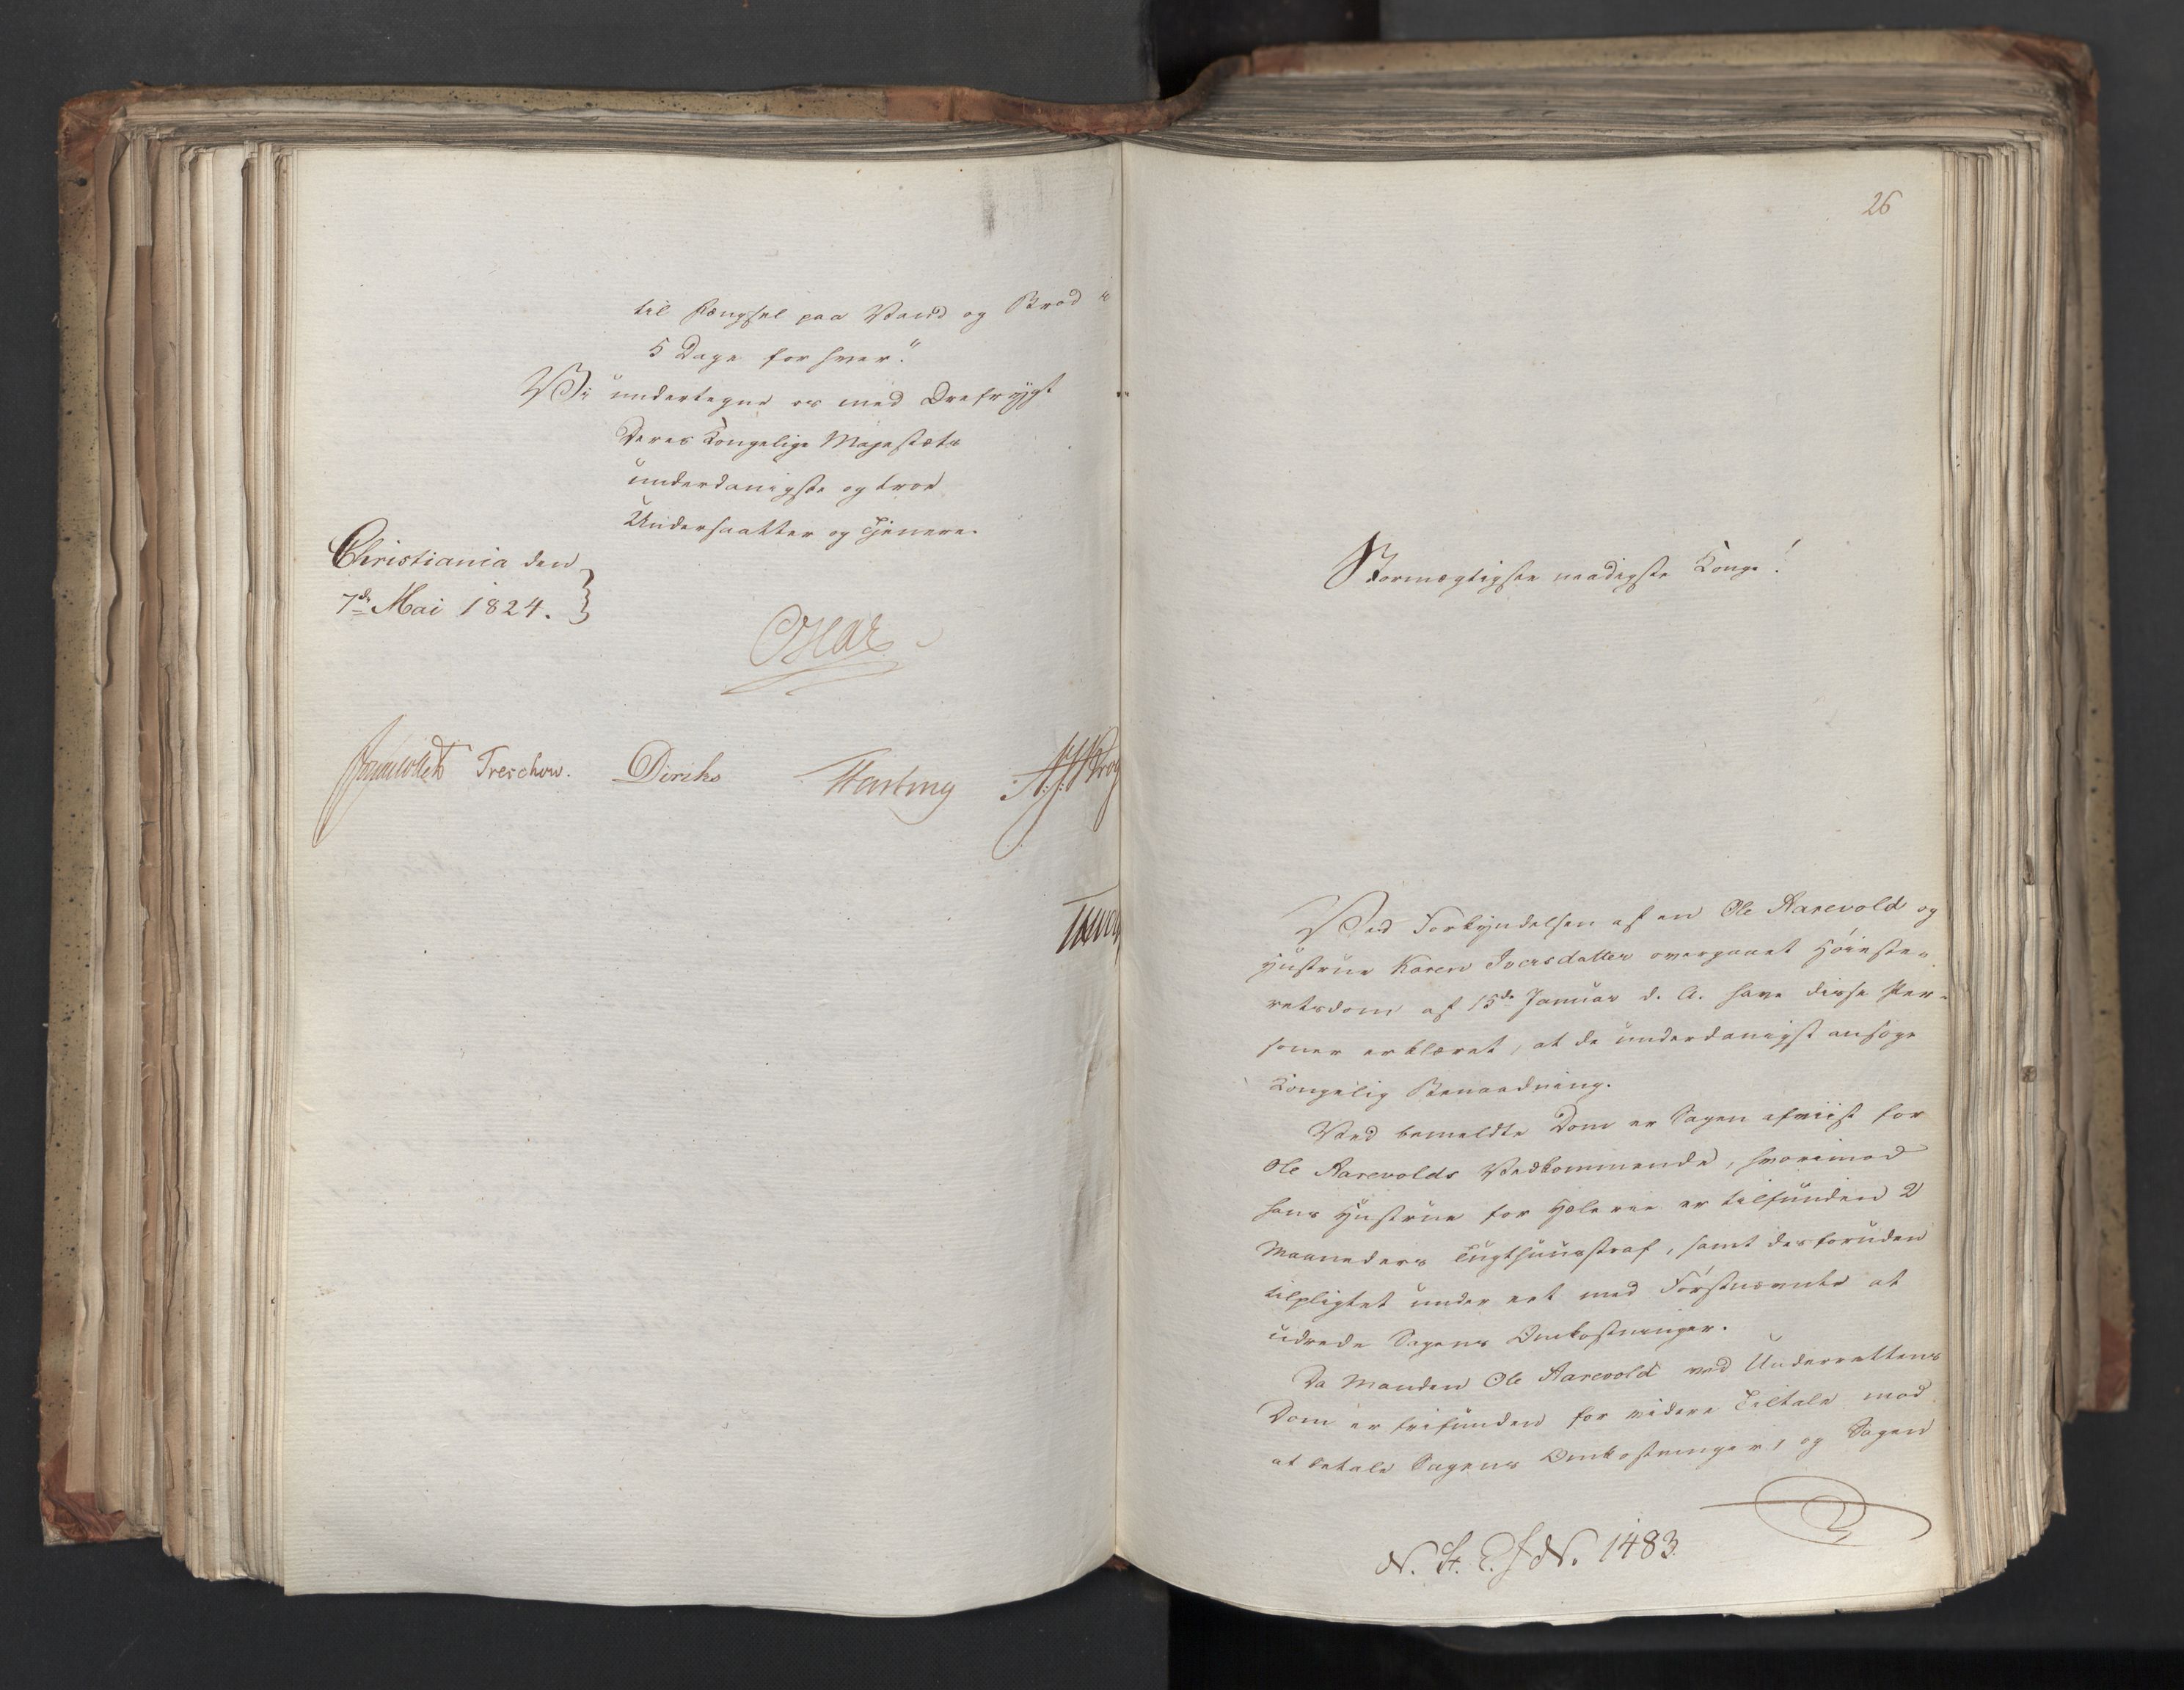 til Fængsel paa Vand og Brød
5 Dage for hver."
Vi undertegne os med Ærefrygt
Deres Kongelige Majestæts
underdanigste og troe
Undersaatter og Tjenere.
Christiania den
7de Mai 1824.
Oscar
Jonas Collett Treschow. Diriks Hartmg A. J. Krog
26
Stormægtigste naadigste Konge!
Ved Forkyndelsen af en Ole Aarevold og
Hustrue Karen Iversdatter overgaaet Høieste-
retsdom af 15de Januar d. A. have disse Per-
soner erklæret, at de underdanigst ansøge
Kongelig Benaadning.
Ved bemeldte Dom er Sagen afviist for
Ole Aarevolds Vedkommende, hvorimod
hans Hustrue for Hælerie er tilfunden 2
Maaneders Tugthuusstraf, samt desforuden
tilpligtet under eet med Førstnævnte at
udrede Sagens Omkostninger.
Da Manden Ole Aarevold ved Underrettens
Dom er frifunden for videre Tiltale mod
at betale Sagens Omkostninger, og Sagen
N. St. E. f N. 1483.